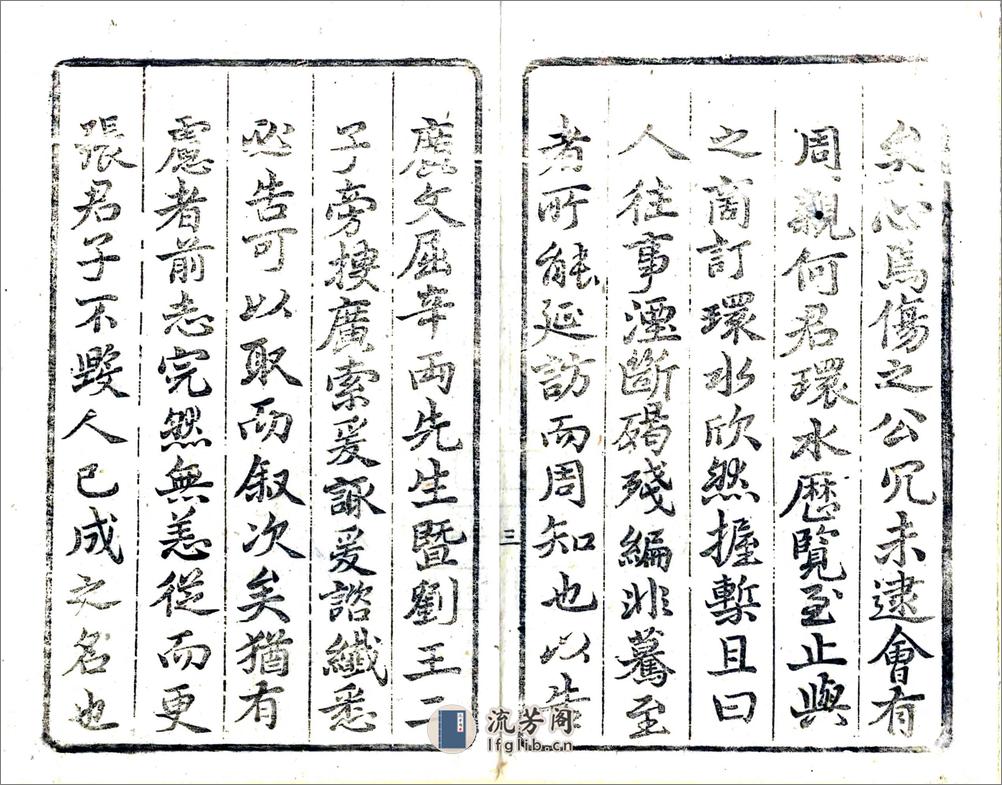 矣心焉傷之公冗未逮會有
周親何君環水歴覽至止與
之商訂環水欣然握槧且曰
人往事湮斷碣殘編非驀至
者所能延訪而周知也以告
三
廣文屈辛兩先生暨劉王二
子旁搜廣索爰諏爰諮纖悉
必告可以取而叙次矣猶有
慮者前志完然無恙從而更
張君子不毀人已成之名也
流芳阁
lfglib.cn